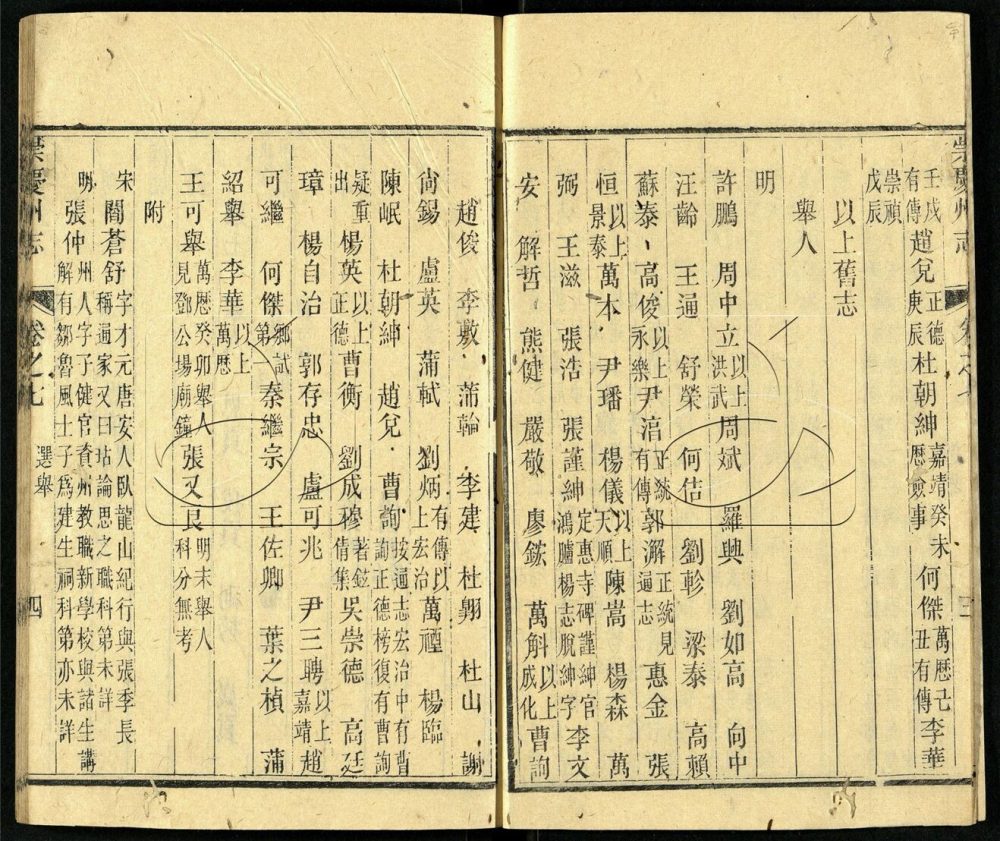 崇慶州志 卷之七 三
壬戌有傳趙兌正德庚辰杜朝紳嘉靖癸未歷僉事何傑萬歷己丑有傳李華
崇禎戊辰
以上舊志
舉人
明
許鵬 周中立以上洪武周斌 羅興 劉如高 向中
汪齡 王逼 舒榮 何佶 劉軫 梁泰 高賴
蘇泰 高俊以上永樂尹涫正統有傳郭澥正統見通志惠金 張
恒以上景泰萬本 尹璠 楊儀以上天順陳嵩 楊森 萬
弼 王滋 張浩 張謹紳定惠寺碑謹紳官鴻臚楊志脫紳字李文
安 解哲 熊健 嚴敬 廖鋐 萬斛以上成化曹詢
趙俊 李敷 蒲輪 李建 杜翱 杜山 謝
尙錫 盧英 蒲軾 劉炳有傳以上宏治萬禋 楊臨
陳岷 杜朝紳 趙兌 曹詢按通志宏治中有曹詢正德榜復有曹詢
疑重出楊英以上正德曹衡 劉成穆著鈜倩集吳崇德 高廷
璋 楊自治 郭存忠 盧可兆 尹三聘以上嘉靖趙
可繼 何傑鄉試第一秦繼宗 王佐卿 葉之楨 蒲
紹舉 李華以上萬歷
王可舉萬歷癸卯舉人見鄧公場廟鐘張又良明末舉人科分無考
附
宋 閻蒼舒字才元唐安人臥龍山紀行與張季長稱通家又曰坫論思之職科第未詳
明 張仲州人字子健官資州教職新學校與諸生講解有鄒魯風士子爲建生祠科第亦未詳
崇慶州志 卷之七 選舉 四